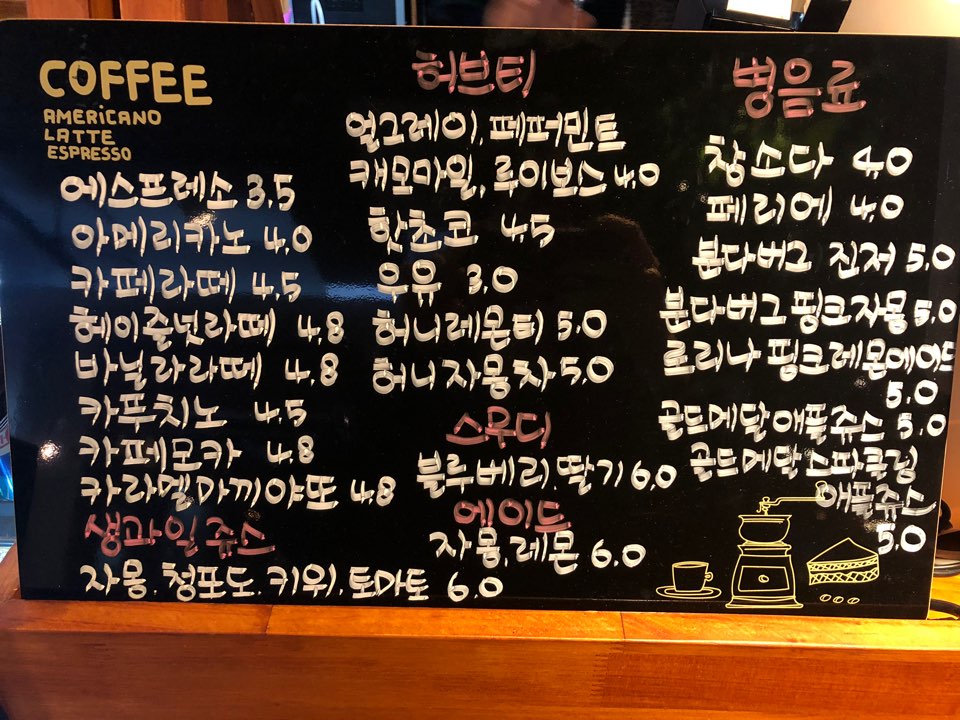 COFFEE
AMERICANO
LATTE
ESPRESSO
에스프레소 3.5
아메리카노 4.0
카페라떼 4.5
헤이즐넛라떼 4.8
바닐라라떼 4.8
카푸치노 4.5
카페모카 4.8
카라멜마끼야또 4.8
생과일쥬스
자몽.청포도.키위.토마토 6.0
허브티
얼그레이.페퍼민트
캐모마일.루이보스 4.0
핫초코 4.5
우유 3.0
허니레몬티 5.0
허니자몽차 5.0
스무디
블루베리.딸기 6.0
에이드
자몽.레몬 6.0
병음료
창소다 4.0
페리에 4.0
분다버그 진저 5.0
분다버그 핑크자몽 5.0
로리나 핑크레몬에이드
5.0
골드메달애플쥬스 5.0
골드메달스파클링
애플쥬스
5.0